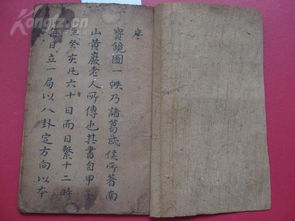 序
寳鏡圖一帙乃諸葛武侯所著南
山黄巖老人所傳也其書自甲子
至癸亥凡六十日而日繫十二時
每日立一局以八卦定方向以本
Kongfz.com